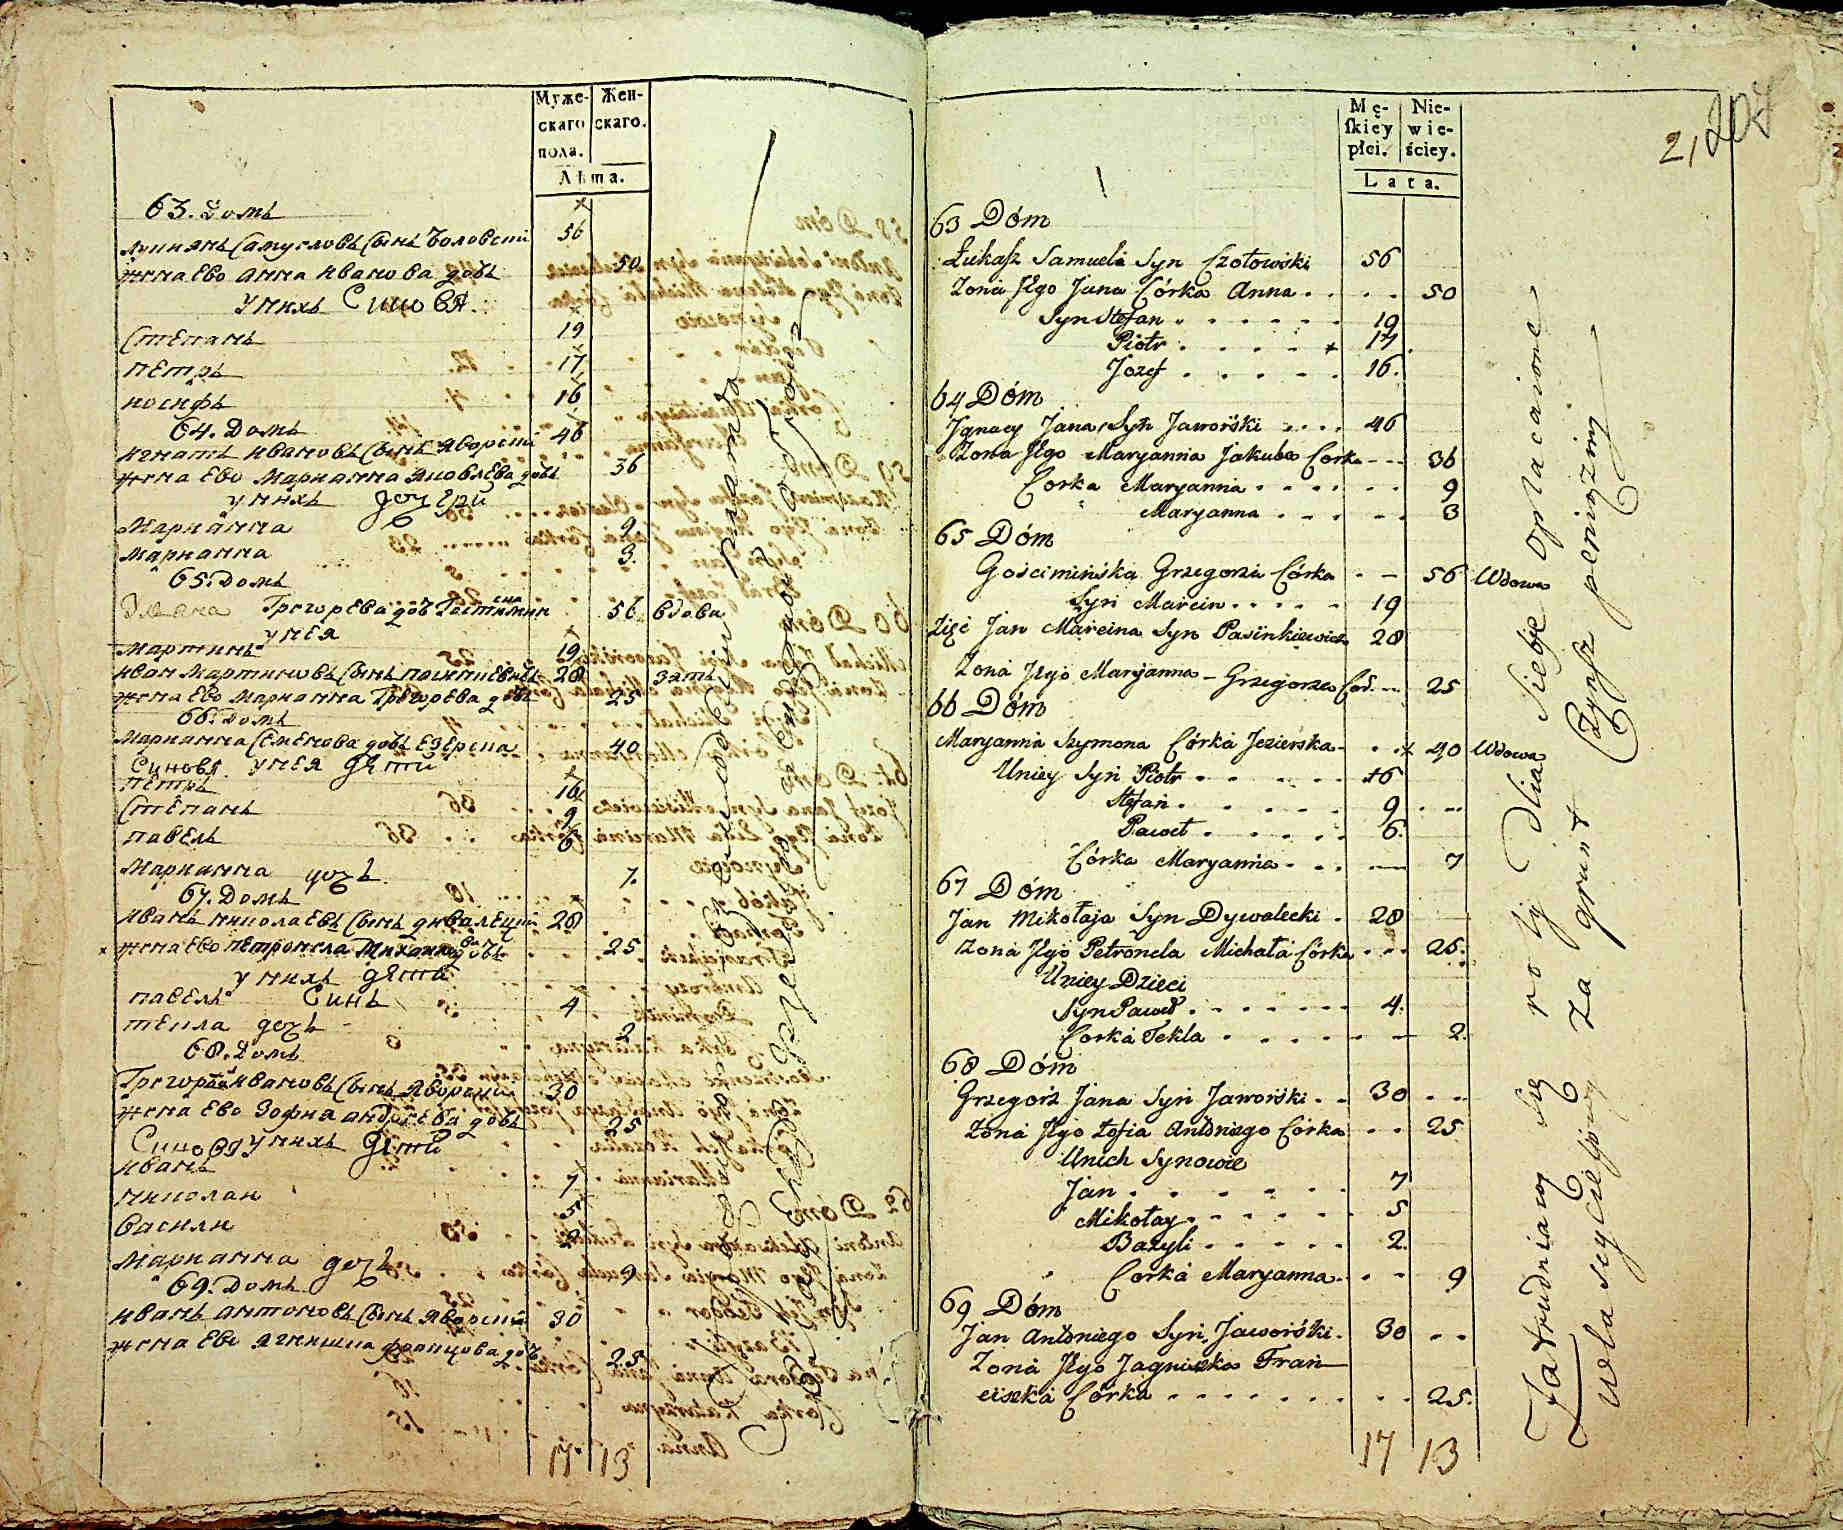 Муже-
скаго
пола.
Жен-
скаго.
Лѣта.
63. Домъ
Лукиянъ Самуеловъ Сынъ Чоловски 56
жена Ево Анна Иванова дочь 50
у нихъ Синовя
Степанъ 19
Петръ 17
иосифъ 16
64. Домъ
игнатъ ивановъ Сынъ Яворски 46
жена Ево Марианна Яковлева дочь 36
у нихъ дочери
Марианна 9
Марианна 3.
65. Домъ
Грегорева дочь 56 вдова
у нея
Мартинъ 19
иван Мартиновъ Сынъ 28 зять
жена Ево Марианна Грегорева дочь 25
66. Домъ
Марианна Семенова дочь Езерска 40
Синовя у нея дети
Петръ 16
Степанъ 9
павелъ 6
Марианна дочь 7.
67. Домъ
иванъ николаевъ Сынъ дивалецки 28
жена Ево Петронела дочъ 25
у нихъ дети
павелъ Синъ 4
текла дочъ 2
68. Домъ
Грегорей ивановъ Сынъ Яворски 30
жена Ево Зофиа андреева дочъ 25
Синовя у нихъ дети
иванъ 7
николаи 5
василы 2
Марианна дочъ 9
69. Домъ
иванъ антоновъ Сынъ Яворски 30
жена Ево Ягнишка францова дочъ 25
17 13
2, 207
Mę-
skiey
płci.
Nie-
wie-
ściey.
Lata.
63 Dóm
Łukasz Samuela Syn Czołowski 56
Zona Jego Jana Córka Anna 50
Syn Stefan 19
Piotr 17
Jozef 16.
64 Dóm
Jgnacy Jana Syn Jaworski 46
Zona Jego Maryanna Jakuba Corka 36
Corka Maryanna 9
Maryanna 3
65 Dóm
Gościmińska Grzegorza Córka 56 Wdowa
Syn Marcin 19
Zięć Jan Marcina Syn Pasinkiewicz 28
Zona Jego Maryanna Grzegorza Cor. 25
66 Dóm
Maryanna Szymona Córka Jezierska 40 Wdowa
Uniey Syn Piotr 16
Stefan 9
Paweł 6.
Córka Maryanna 7
67 Dóm
Jan Mikołaja Syn Dywalecki 28
Zona Jego Petronela Michała Córka 25.
Uniey Dzieci
Syn Paweł 4.
Corka Tekla 2.
68 Dóm
Grzegorz Jana Syn Jaworski 30
Zona Jego Zofia Antoniego Córka 25
Unich Synowie
Jan 7
Mikołay 5
Bazyli 2.
Corka Maryanna 9
69 Dóm
Jan Antoniego Syn Jaworski 30
Zona Jego Jagnieszka Fran
ciszka Córka 25.
17 13
Zatrudniaią się rolą dlia Siebie opłacaiąc
właścicielowi za grunt Czynsz pieniężny